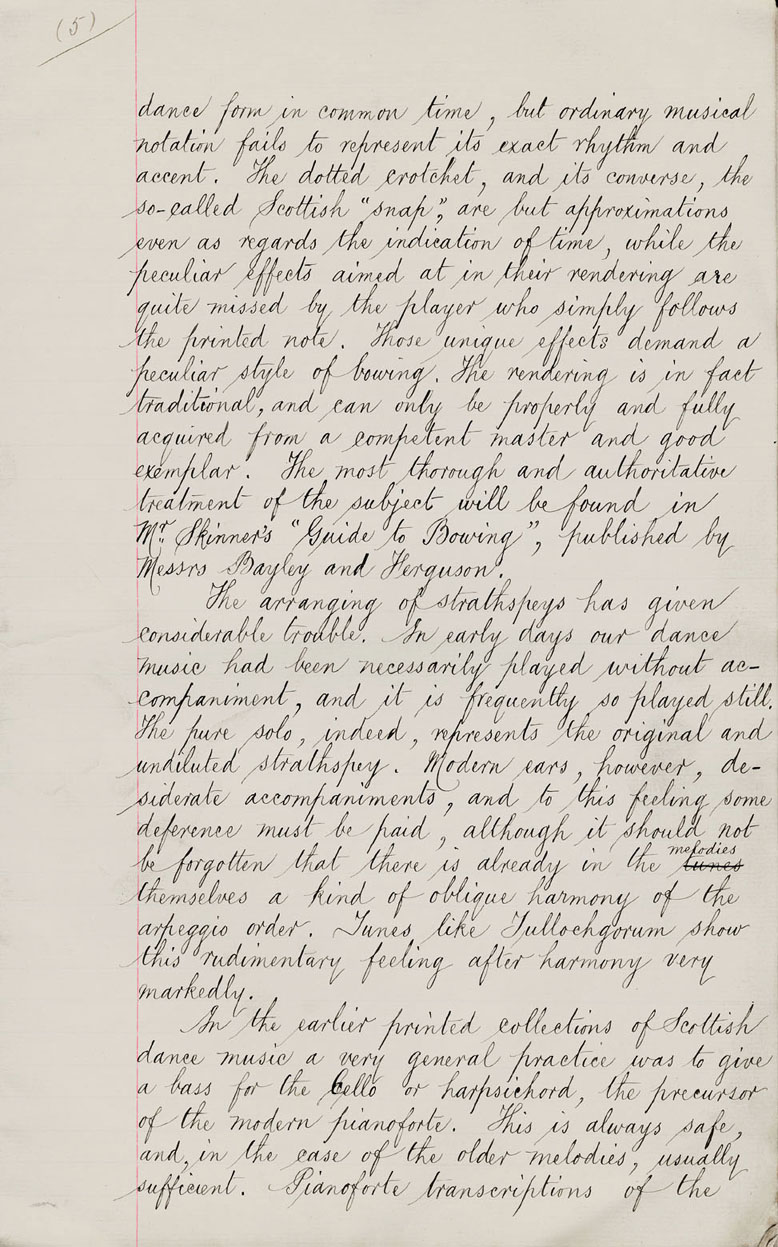 (5)
dance form in common time, but ordinary musical
notation fails to represent its exact rhythm and
accent. The dotted crotchet, and its converse, the
so-called Scottish "snap", are but approximations
even as regards the indication of time, while the
peculiar effects aimed at in their rendering are
quite missed by the player who simply follows
the printed note. Those unique effects demand a
peculiar style of bowing. The rendering is in fact
traditional, and can only be properly and fully
acquired from a competent master and good
exemplar. The most thorough and authoritative
treatment of the subject will be found in
Mr. Skinner's "Guide to Bowing", published by
Messrs Bayley and Ferguson.
The arranging of strathspeys has given
considerable trouble. In early days our dance
music had been necessarily played without ac-
companiment, and it is frequently so played still.
The pure solo, indeed, represents the original and
undiluted strathspey. Modern ears, however, de-
siderate accompaniments, and to this feeling some
deference must be paid, although it should not
be forgotten that there is already in the tunes melodies
themselves a kind of oblique harmony of the
arpeggio order. Tunes like Tullochgorum show
this rudimentary feeling after harmony very
markedly.
In the earlier printed collections of Scottish
dance music a very general practice was to give
a bass for the Cello or harpsichord, the precursor
of the modern pianoforte. This is always safe,
and, in the case of the older melodies, usually
sufficient. Pianoforte transcriptions of the